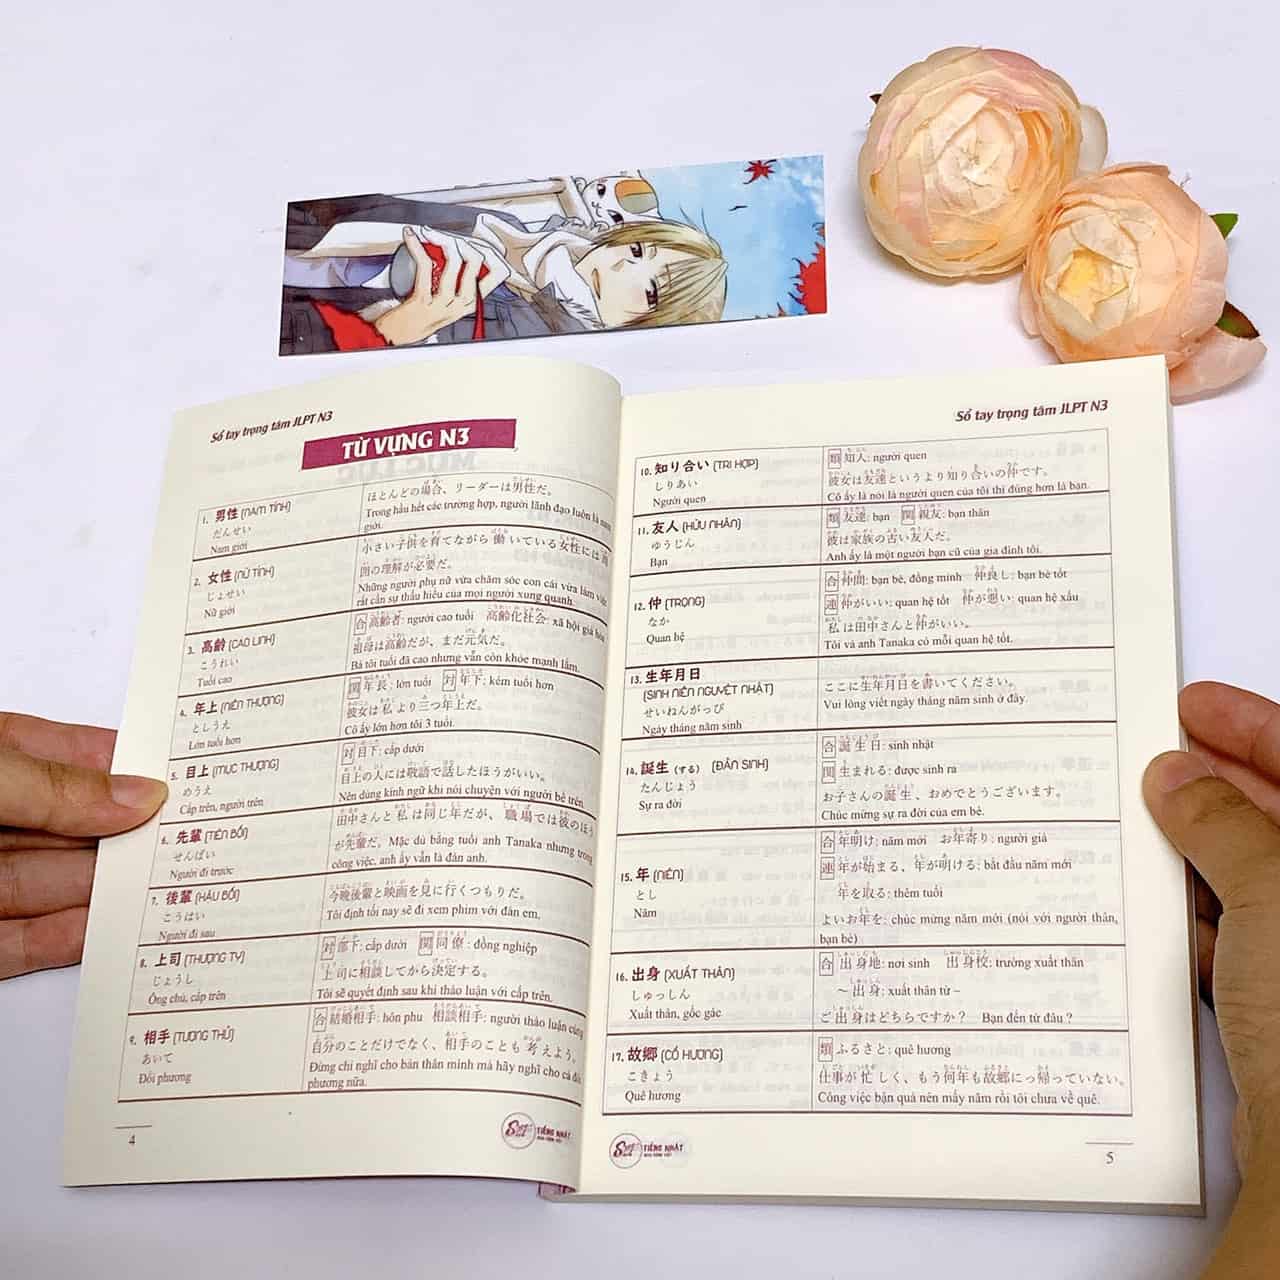 Sổ tay trọng tâm JLPT N3
TỪ VỰNG N3
1. 男性 (NAM TÍNH)
だんせい
Nam giới
ほとんどの場合、リーダーは男性だ。
Trong hầu hết các trường hợp, người lãnh đạo luôn là nam
giới.
2. 女性 (NỮ TÍNH)
じょせい
Nữ giới
小さい子供を育てながら働いている女性には周
囲の理解が必要だ。
Những người phụ nữ vừa chăm sóc con cái vừa làm việc
rất cần sự thấu hiểu của mọi người xung quanh.
3. 高齢 (CAO LINH)
こうれい
Tuổi cao
合 高齢者: người cao tuổi 高齢化社会: xã hội già hóa
祖母は高齢だが、まだ元気だ。
Bà tôi tuổi đã cao nhưng vẫn còn khỏe mạnh lắm.
4. 年上 (NIÊN THƯỢNG)
としうえ
Lớn tuổi hơn
関 年長: lớn tuổi 対 年下: kém tuổi hơn
彼女は私より三つ年上だ。
Cô ấy lớn hơn tôi 3 tuổi.
5. 目上 (MỤC THƯỢNG)
めうえ
Cấp trên, người trên
対 目下: cấp dưới
目上の人には敬語で話したほうがいい。
Nên dùng kính ngữ khi nói chuyện với người bề trên.
6. 先輩 (TIÊN BỐI)
せんぱい
Người đi trước
田中さんと私は同じ年だが、職場では彼のほう
が先輩だ。 Mặc dù bằng tuổi anh Tanaka nhưng trong
công việc, anh ấy vẫn là đàn anh.
7. 後輩 (HẬU BỐI)
こうはい
Người đi sau
今晩後輩と映画を見に行くつもりだ。
Tôi định tối nay sẽ đi xem phim với đàn em.
8. 上司 (THƯỢNG TY)
じょうし
Ông chủ, cấp trên
対 部下: cấp dưới 関 同僚: đồng nghiệp
上司に相談してから決定する。
Tôi sẽ quyết định sau khi thảo luận với cấp trên.
9. 相手 (TƯƠNG THỦ)
あいて
Đối phương
合 結婚相手: hôn phu 相談相手: người thảo luận cùng
自分のことだけでなく、相手のことも考えよう。
Đừng chỉ nghĩ cho bản thân mình mà hãy nghĩ cho cả đối
phương nữa.
4
TIẾNG NHẬT
Sổ tay trọng tâm JLPT N3
10. 知り合い (TRI HỢP)
しりあい
Người quen
類 知人: người quen
彼女は友達というより知り合いの仲です。
Cô ấy là nói là người quen của tôi thì đúng hơn là bạn.
11. 友人 (HỮU NHÂN)
ゆうじん
Bạn
類 友達: bạn 関 親友: bạn thân
彼は家族の古い友人だ。
Anh ấy là một người bạn cũ của gia đình tôi.
12. 仲 (TRỌNG)
なか
Quan hệ
合 仲間: bạn bè, đồng minh 仲良し: bạn bè tốt
連 仲がいい: quan hệ tốt 仲が悪い: quan hệ xấu
私は田中さんと仲がいい。
Tôi và anh Tanaka có mối quan hệ tốt.
13. 生年月日
(SINH NIÊN NGUYỆT NHẬT)
せいねんがっぴ
Ngày tháng năm sinh
ここに生年月日を書いてください。
Vui lòng viết ngày tháng năm sinh ở đây.
14. 誕生 (する) (ĐẢN SINH)
たんじょう
Sự ra đời
合 誕生日: sinh nhật
関 生まれる: được sinh ra
お子さんの誕生、おめでとうございます。
Chúc mừng sự ra đời của em bé.
15. 年 (NIÊN)
とし
Năm
合 年明け: năm mới お年寄り: người già
連 年が始まる、年が明ける: bắt đầu năm mới
年を取る: thêm tuổi
よいお年を: chúc mừng năm mới (nói với người thân,
bạn bè)
16. 出身 (XUẤT THÂN)
しゅっしん
Xuất thân, gốc gác
合 出身地: nơi sinh 出身校: trường xuất thân
～出身: xuất thân từ –
ご出身はどちらですか？ Bạn đến từ đâu ?
17. 故郷 (CỐ HƯƠNG)
こきょう
Quê hương
類 ふるさと: quê hương
仕事が忙しく、もう何年も故郷にっ帰っていない。
Công việc bận quá nên mấy năm rồi tôi chưa về quê.
TIẾNG NHẬT
5